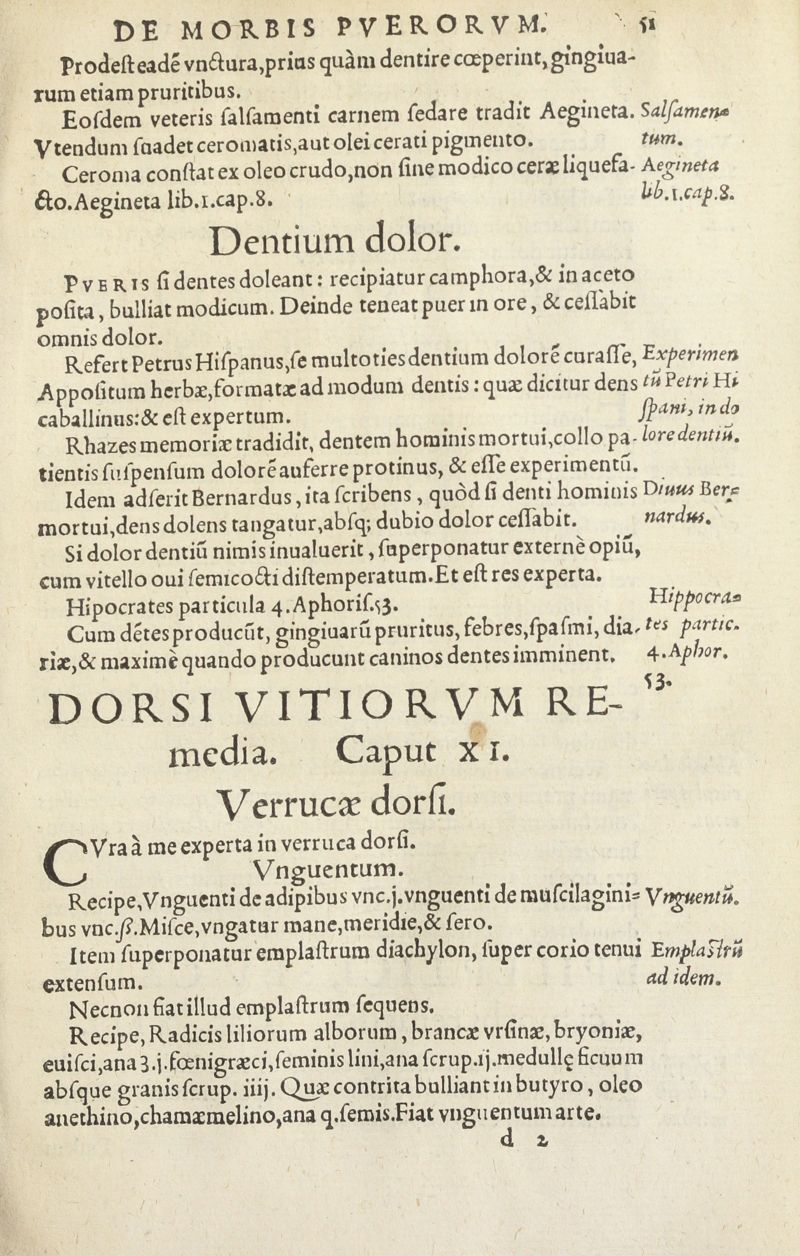 DE MORBIS PVERORVM. 51
Prodeſt eadē vnctura, prius quàm dentire cœperint, gingiua-
rum etiam pruritibus.
Eoſdem veteris ſalſamenti carnem ſedare tradit Aegineta. Salſamen-
Vtendum ſuadet ceromatis, aut olei cerati pigmento. tum.
Ceroma conſtat ex oleo crudo, non ſine modico ceræ liquefa- Aegineta
cto. Aegineta lib.1.cap.8. lib.1.cap.8.
Dentium dolor.
PVERIS ſi dentes doleant: recipiatur camphora, & in aceto
poſita, bulliat modicum. Deinde teneat puer in ore, & ceſſabit
omnis dolor.
Refert Petrus Hiſpanus, ſe multoties dentium dolorē curaſſe, Experimen
Appoſitum herbæ, formatæ ad modum dentis: quæ dicitur dens tū Petri Hi
caballinus: & eſt expertum. ſpani, in do
Rhazes memoriæ tradidit, dentem hominis mortui, collo pa- lore dentiū.
tientis ſuſpenſum dolorē auferre protinus, & eſſe experimentū.
Idem adſerit Bernardus, ita ſcribens, quòd ſi denti hominis Diuus Ber-
mortui, dens dolens tangatur, abſq; dubio dolor ceſſabit. nardus.
Si dolor dentiū nimis inualuerit, ſuperponatur externè opiū,
cum vitello oui ſemicocti diſtemperatum. Et eſt res experta.
Hipocrates particula 4. Aphoriſ.53. Hippocra-
Cum dētes producūt, gingiuarū pruritus, febres, ſpaſmi, dia- tes partic.
riæ, & maximè quando producunt caninos dentes imminent. 4. Aphor.
53.
DORSI VITIORVM RE-
media. Caput XI.
Verrucæ dorſi.
CVra à me experta in verruca dorſi.
Vnguentum.
Recipe, Vnguenti de adipibus vnc.j. vnguenti de muſcilagini- Vnguentū.
bus vnc.ß. Miſce, vngatur mane, meridie, & ſero.
Item ſuperponatur emplaſtrum diachylon, ſuper corio tenui Emplaſtrū
extenſum. ad idem.
Necnon fiat illud emplaſtrum ſequens.
Recipe, Radicis liliorum alborum, brancæ vrſinæ, bryoniæ,
euiſci, ana ʒ.j. fœnigræci, ſeminis lini, ana ſcrup.ij. medullę ficuum
abſque granis ſcrup. iiij. Quæ contrita bulliant in butyro, oleo
anethino, chamæmelino, ana q. ſemis. Fiat vnguentum arte.
d 2